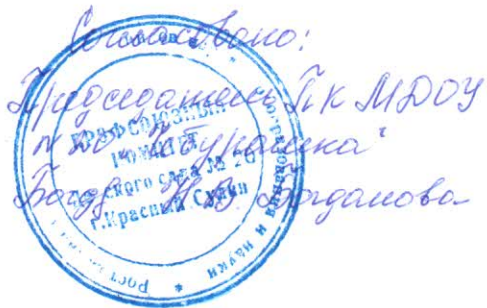 Согласовано:
Председатель ПК МДОУ
"Чебурашка"
Н.В. Богданова
ПРОФСОЮЗНЫЙ
КОМИТЕТ
детского сада № 20
г.Красный Сулин
образования и науки